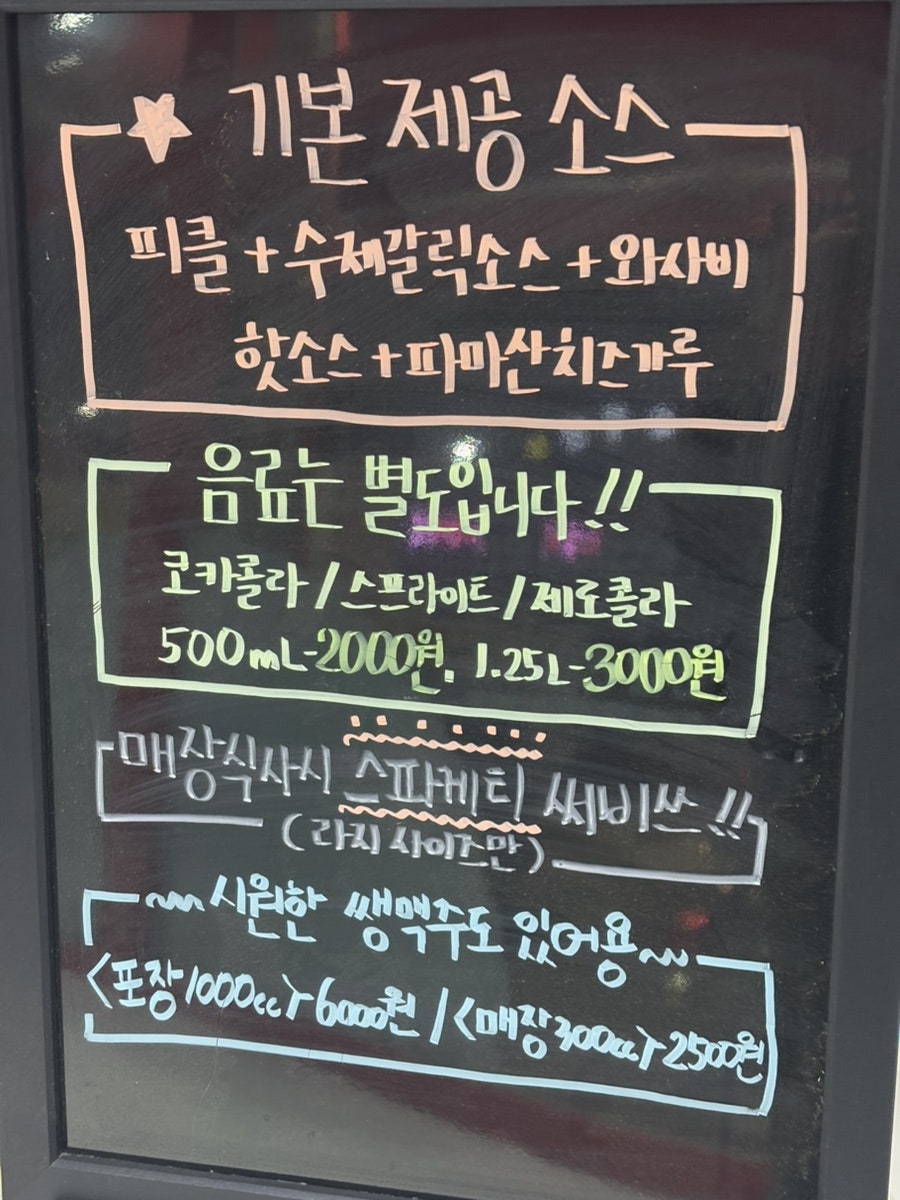 ★ 기본 제공 소스
피클 + 수제갈릭소스 + 와사비
핫소스 + 파마산치즈가루
음료는 별도입니다!!
코카콜라 / 스프라이트 / 제로콜라
500mL-2000원. 1.25L-3000원
매장식사시 스파게티 써비쓰!!
(라지 사이즈만)
~시원한 쌩맥주도 있어용~
<포장1000cc>6000원 / <매장300cc>2500원